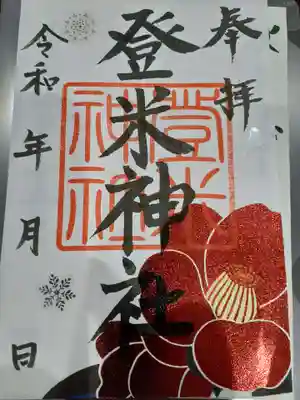 奉拝
登米神社
登米神社
令和 年 月 日